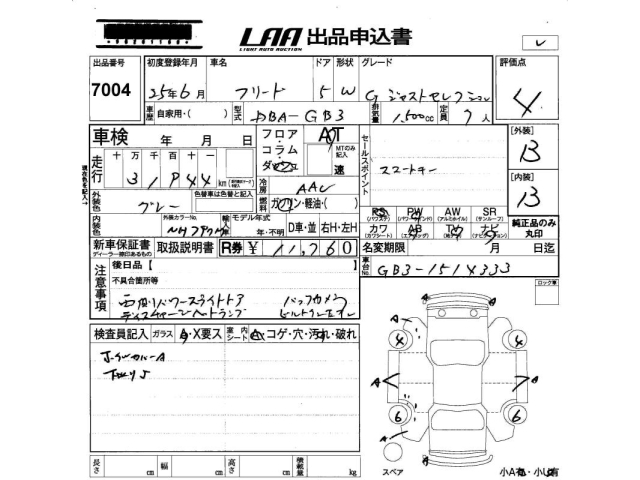 LAA 出品申込書
LIGHT AUTO AUCTION
レ
出品番号 初度登録年月 車名 ドア 形状 グレード 評価点
7004 25年6月 フリード 5 W G ジャストセレクション 4
車歴 自家用・( ) 型式 DBA-GB3 排気量 1,500cc 定員 7人
車検 年 月 日 フロア コラム ダッシュ AT MTのみ記入 速 セールスポイント
[外装] B
走行 十万千百十 km
スマートキー
冷房 AAC
[内装] B
外装色 グレー 色替車は色替と記入 燃料 ガソリン・軽油・( )
内装色 外装カラーNo. 輸入車 モデル年式 年・不明 D車・並 右H・左H
PS PW AW SR
(パワステ) (パワーウインド) (アルミホイル) (サンルーフ)
カワ AB TV ナビ
(カワシート) (エアバッグ) (ナビゲーション)
純正品のみ丸印
新車保証書 取扱説明書 R券 ¥ 11,760 名変期限 月 日迄
ディーラー捺印あるもの
車台No. GB3-1514333
注意事項 後日品【
不具合箇所等
両側パワースライドドア バックカメラ
ディスチャージヘッドランプ
ロック車
検査員記入 ガラス A・X要ス 室内シート コゲ・穴・汚れ・破れ
A
4 4
A A
6 6
A
スペア
長さ cm 幅 cm 高さ cm 積載量 kg
小A有・小U有
現在色を記入